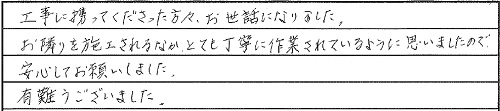 工事に携ってくださった方々、お世話になりました。
お隣りを施工されるなか、とても丁寧に作業されているように思いましたので
安心してお願いしました。
有難うございました。